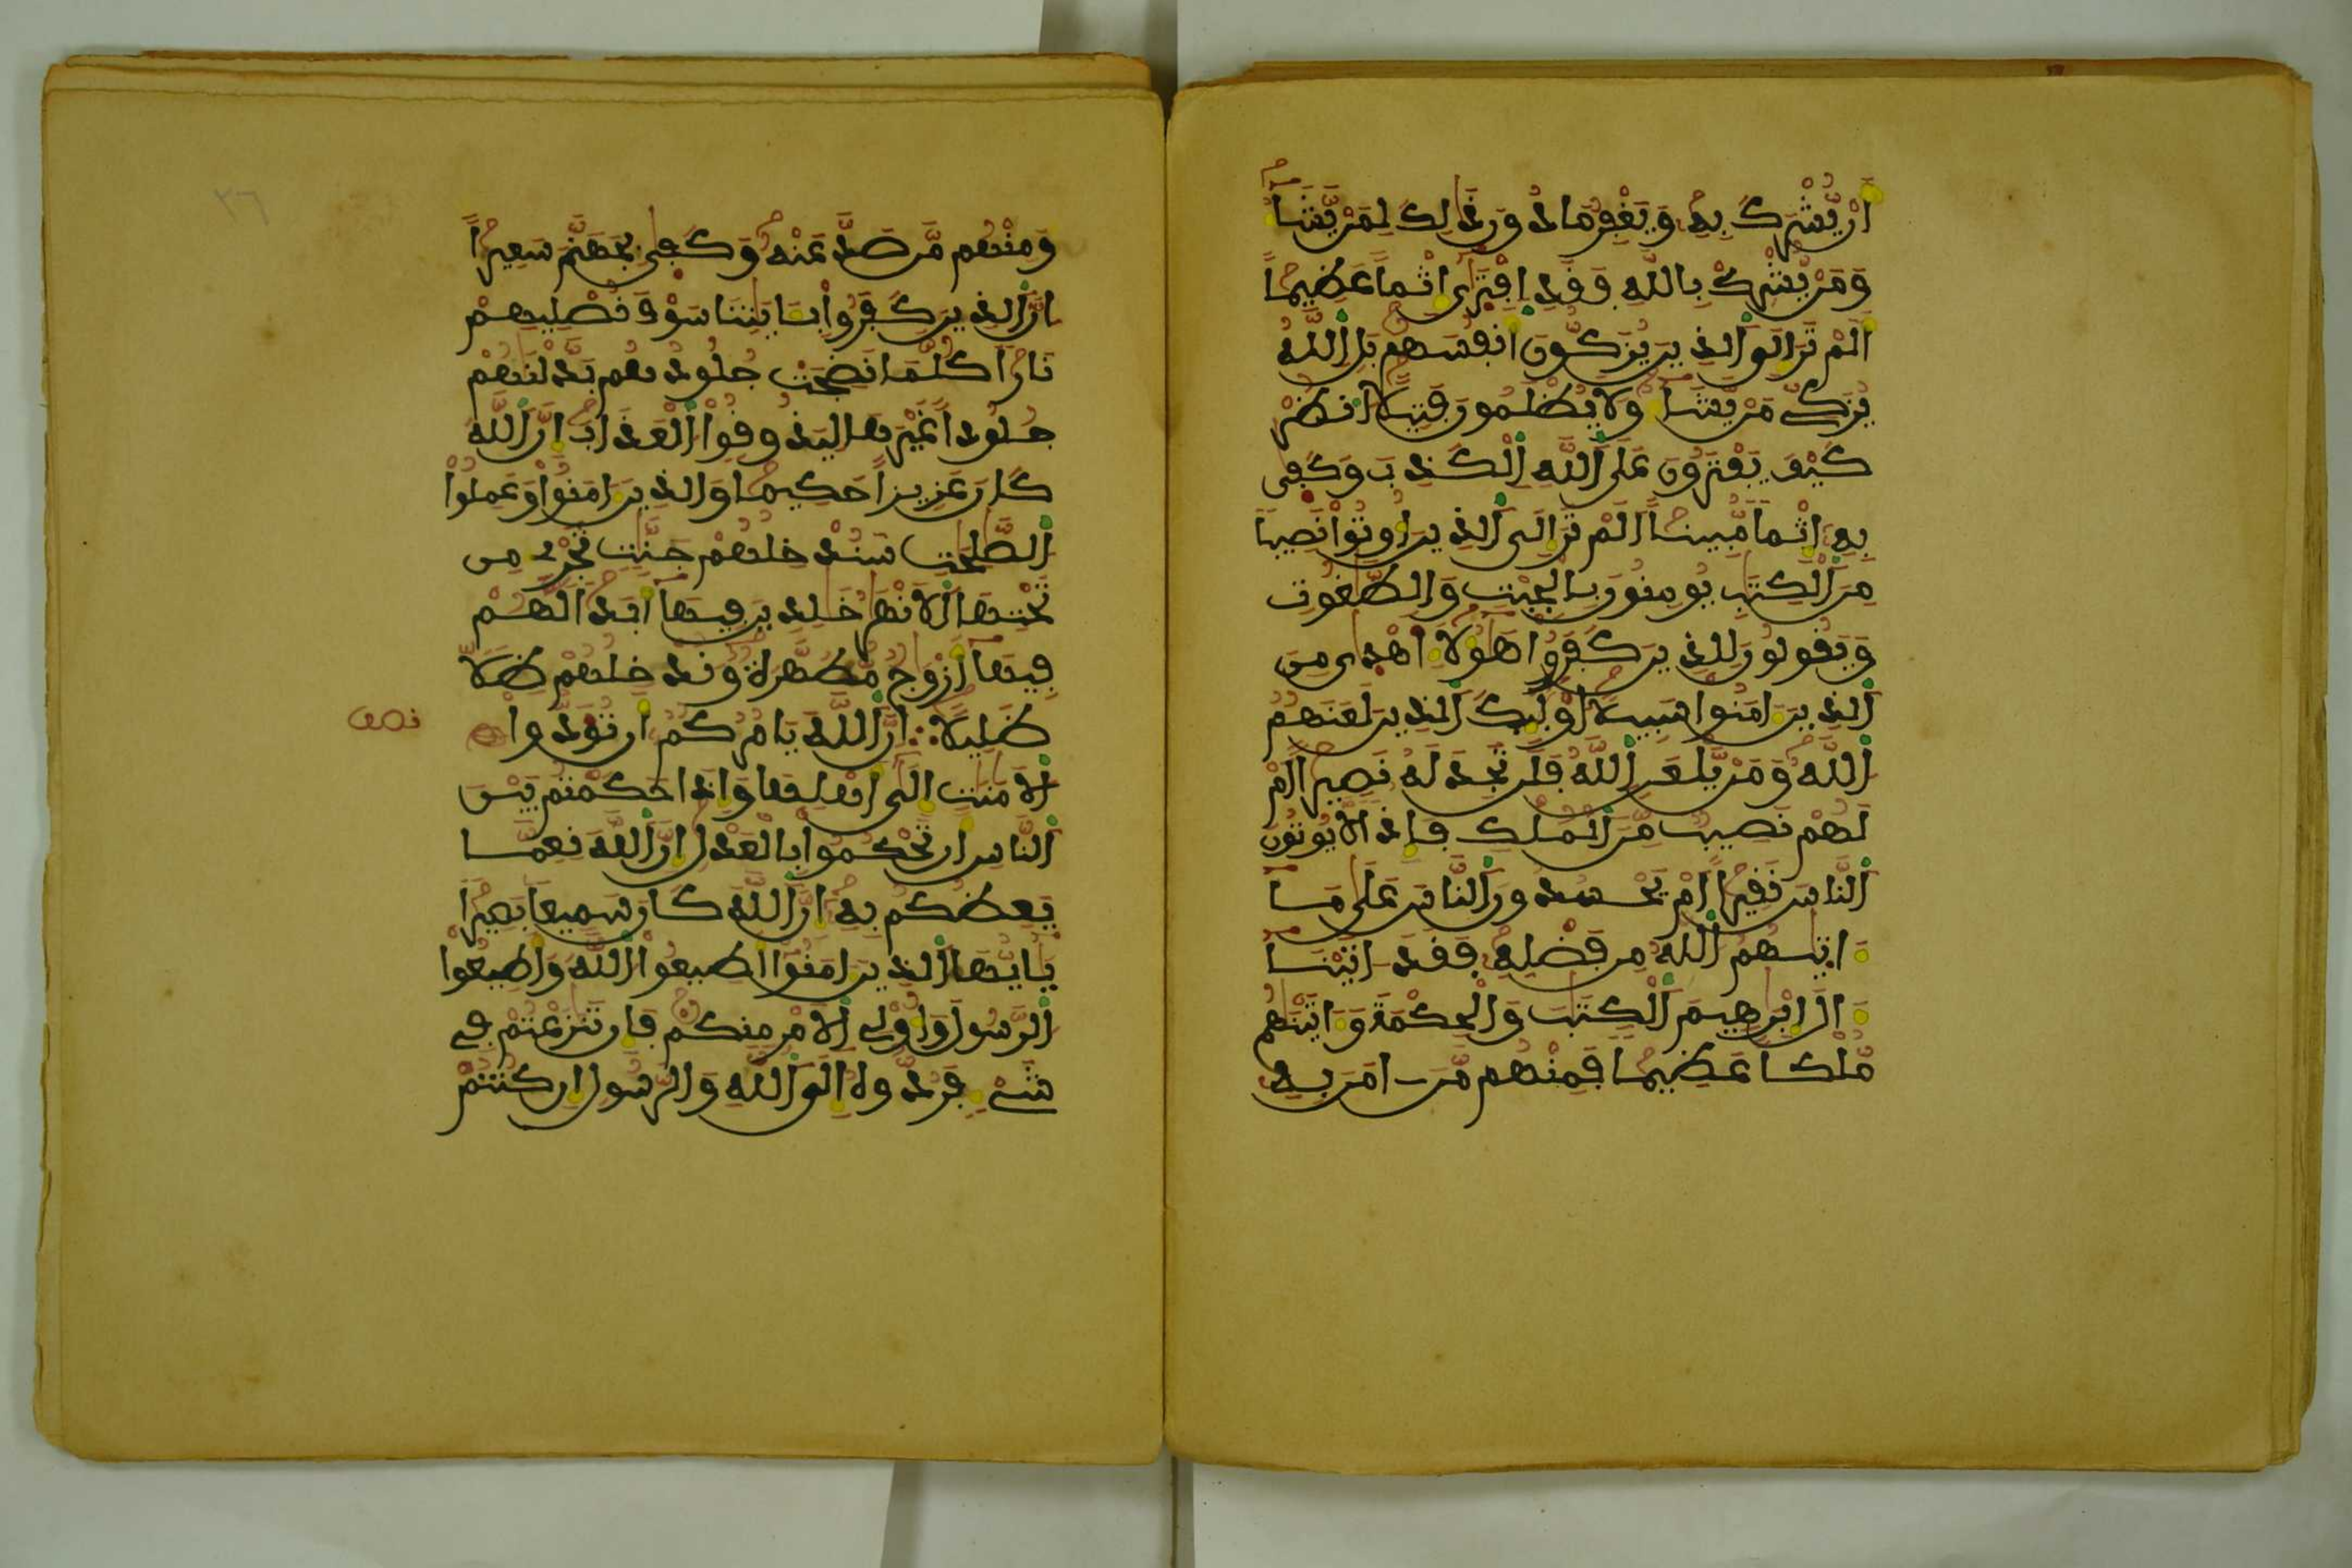 اَنْ يُّشْرَكَ بِهِ وَيَغْفِرُ مَا دُونَ ذَالِكَ لِمَنْ يَّشَآ
وَمَنْ يُّشْرِكْ بِاللَّهِ فَقَدِ اِفْتَرَى اِثْماً عَظِيماً
اَلَمْ تَرَ اِلَى اَلذِينَ يُزَكُّونَ أَنفُسَهُم بَلِ اِللَّهُ
يُزَكِّي مَنْ يَّشَآ وَلَا يُظْلَمُونَ فَتِيلًا اَنظُرْ
كَيْفَ يَفْتَرُونَ عَلَى اَللَّهِ اِلْكَذِبَ وَكَفَى
بِهِ إِثْماً مُّبِيناً اَلَمْ تَرَ إِلَى اَلذِينَ أُوتُواْ نَصِيباً
مِنَ اَلْكِتَٰبِ يُومِنُونَ بِالْجِبْتِ وَالطَّٰغُوتِ
وَيَقُولُونَ لِلذِينَ كَفَرُواْ هَٰؤُلَآ أَهْدَى مِنَ
اَلذِينَ ءَامَنُواْ سَبِيلًا اوْلَٰئِكَ اَلذِينَ لَعَنَهُمُ
اُللَّهُ وَمَنْ يَّلْعَنِ اِللَّهُ فَلَن تَجِدَ لَهُ نَصِيراً اَمْ
لَهُمْ نَصِيبٌ مِّنَ اَلْمُلْكِ فَإِذاً لَّا يُوتُونَ
اَلنَّاسَ نَقِيراً اَمْ يَحْسُدُونَ اَلنَّاسَ عَلَى مَا
ءَاتَٰهُمُ اُللَّهُ مِن فَضْلِهِ فَقَدَ اتَيْنَا
ءَالَ إِبْرَٰهِيمَ اَلْكِتَٰبَ وَالْحِكْمَةَ وَءَاتَيْنَٰهُم
مُّلْكاً عَظِيماً فَمِنْهُم مَّنَ امَنَ بِهِ
وَمِنْهُم مَّن صَدَّ عَنْهُ وَكَفَى بِجَهَنَّمَ سَعِيراً
اِنَّ اَلذِينَ كَفَرُواْ بِـَٔايَٰتِنَا سَوْفَ نُصْلِيهِمْ
نَاراً كُلَّمَا نَضِجَتْ جُلُودُهُم بَدَّلْنَٰهُمْ
جُلُوداً غَيْرَهَا لِيَذُوقُواْ اُلْعَذَابَ اِنَّ اَللَّهَ
كَانَ عَزِيزاً حَكِيماً وَالذِينَ ءَامَنُواْ وَعَمِلُواْ
اُلصَّٰلِحَٰتِ سَنُدْخِلُهُمْ جَنَّٰتٍ تَجْرِي مِن
تَحْتِهَا اَلَانْهَٰرُ خَٰلِدِينَ فِيهَآ أَبَداً لَّهُمْ
فِيهَآ أَزْوَٰجٌ مُّطَهَّرَةٌ وَنُدْخِلُهُمْ ظِلًّا
ظَلِيلًا اِنَّ اَللَّهَ يَامُرُكُمُ أَن تُوَدُّواْ
نصف
اُلَامَٰنَٰتِ إِلَى أَهْلِهَا وَإِذَا حَكَمْتُم بَيْنَ
اَلنَّاسِ أَن تَحْكُمُواْ بِالْعَدْلِ إِنَّ اَللَّهَ نِعِمَّا
يَعِظُكُم بِهِ إِنَّ اَللَّهَ كَانَ سَمِيعاً بَصِيراً
يَٰأَيُّهَا اَلذِينَ ءَامَنُواْ أَطِيعُواْ اُللَّهَ وَأَطِيعُواْ
اُلرَّسُولَ وَأُوْلِي اِلَامْرِ مِنكُمْ فَإِن تَنَٰزَعْتُمْ فِي
شَيْءٍ فَرُدُّوهُ إِلَى اَللَّهِ وَالرَّسُولِ إِن كُنتُمْ
٢٦